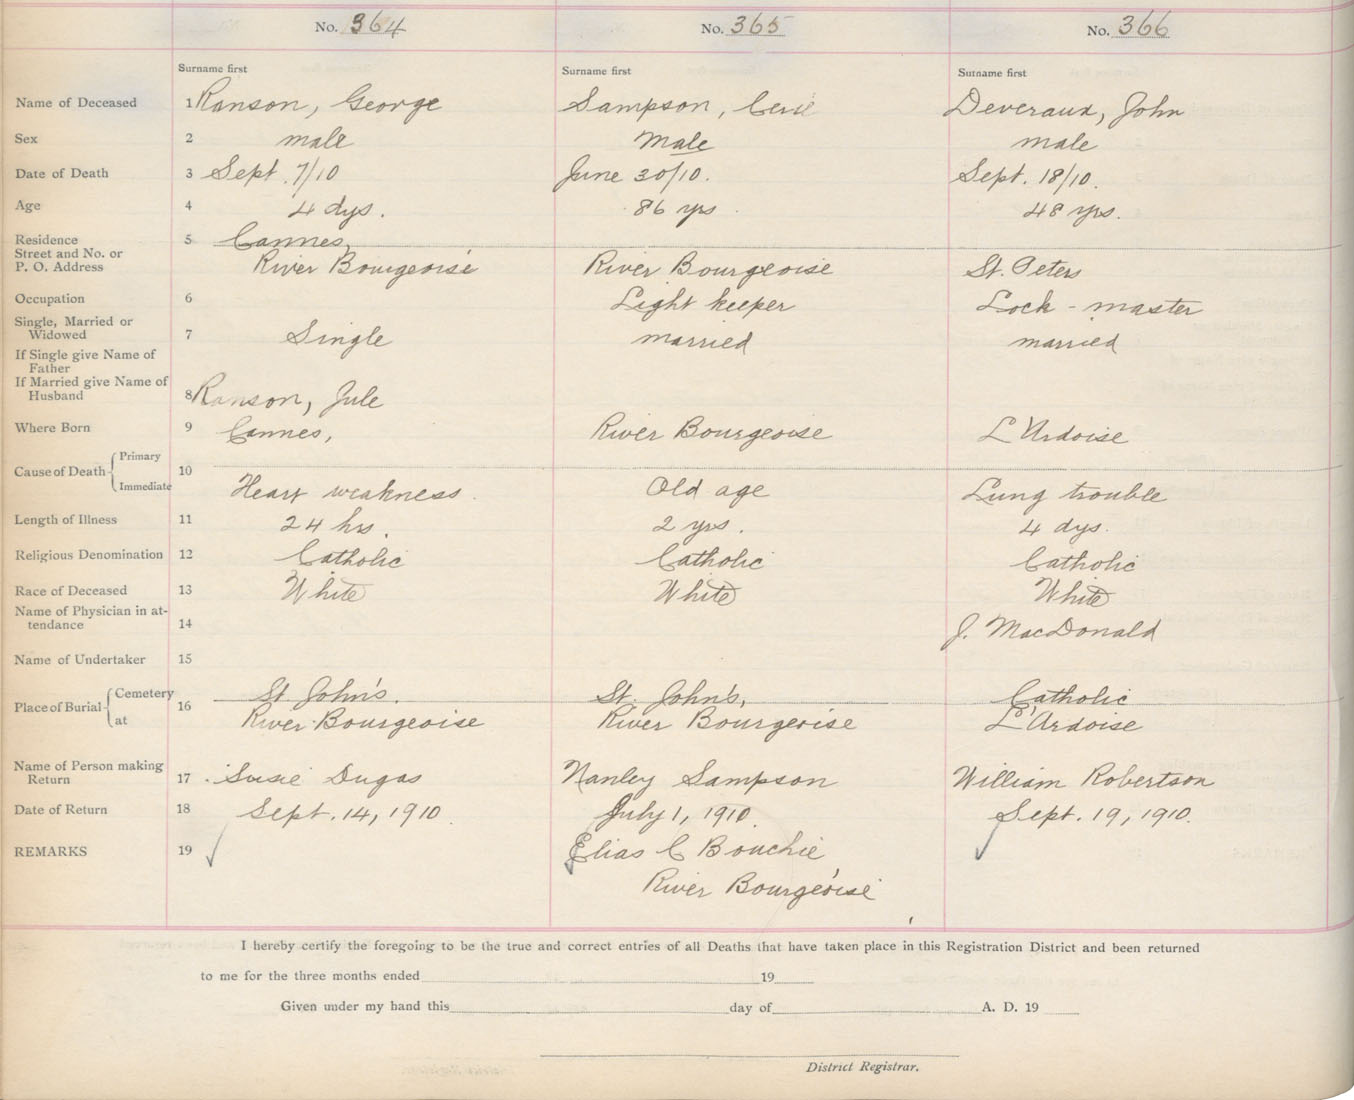 No. 364 No. 365 No. 366
Surname first Surname first Surname first
Name of Deceased 1 Ranson, George Sampson, Deveraux, John
Sex 2 male Male male
Date of Death 3 Sept. 7/10 June 30/10. Sept. 18/10.
Age 4 4 dys. 86 yrs 48 yrs.
Residence 5 Cannes,
Street and No. or
P. O. Address River Bourgeoise River Bourgeoise St. Peters
Occupation 6 Light keeper Lock - master
Single, Married or
Widowed 7 Single married married
If Single give Name of
Father
If Married give Name of
Husband 8 Ranson, Jule
Where Born 9 Cannes, River Bourgeoise L'Ardoise
Cause of Death { Primary 10
Immediate Heart weakness. Old age Lung trouble
Length of Illness 11 24 hrs. 2 yrs. 4 dys.
Religious Denomination 12 Catholic Catholic Catholic
Race of Deceased 13 White White White
Name of Physician in at-
tendance 14 J. MacDonald
Name of Undertaker 15
Place of Burial { Cemetery 16 St John's. St. John's, Catholic
at River Bourgeoise River Bourgeoise L'Ardoise
Name of Person making
Return 17 Susie Dugas Sampson William Robertson
Date of Return 18 Sept. 14, 1910. July 1, 1910. Sept. 19, 1910.
REMARKS 19 Elias C Bouchie
River Bourgeoise
I hereby certify the foregoing to be the true and correct entries of all Deaths that have taken place in this Registration District and been returned
to me for the three months ended 19
Given under my hand this day of A. D. 19
District Registrar.